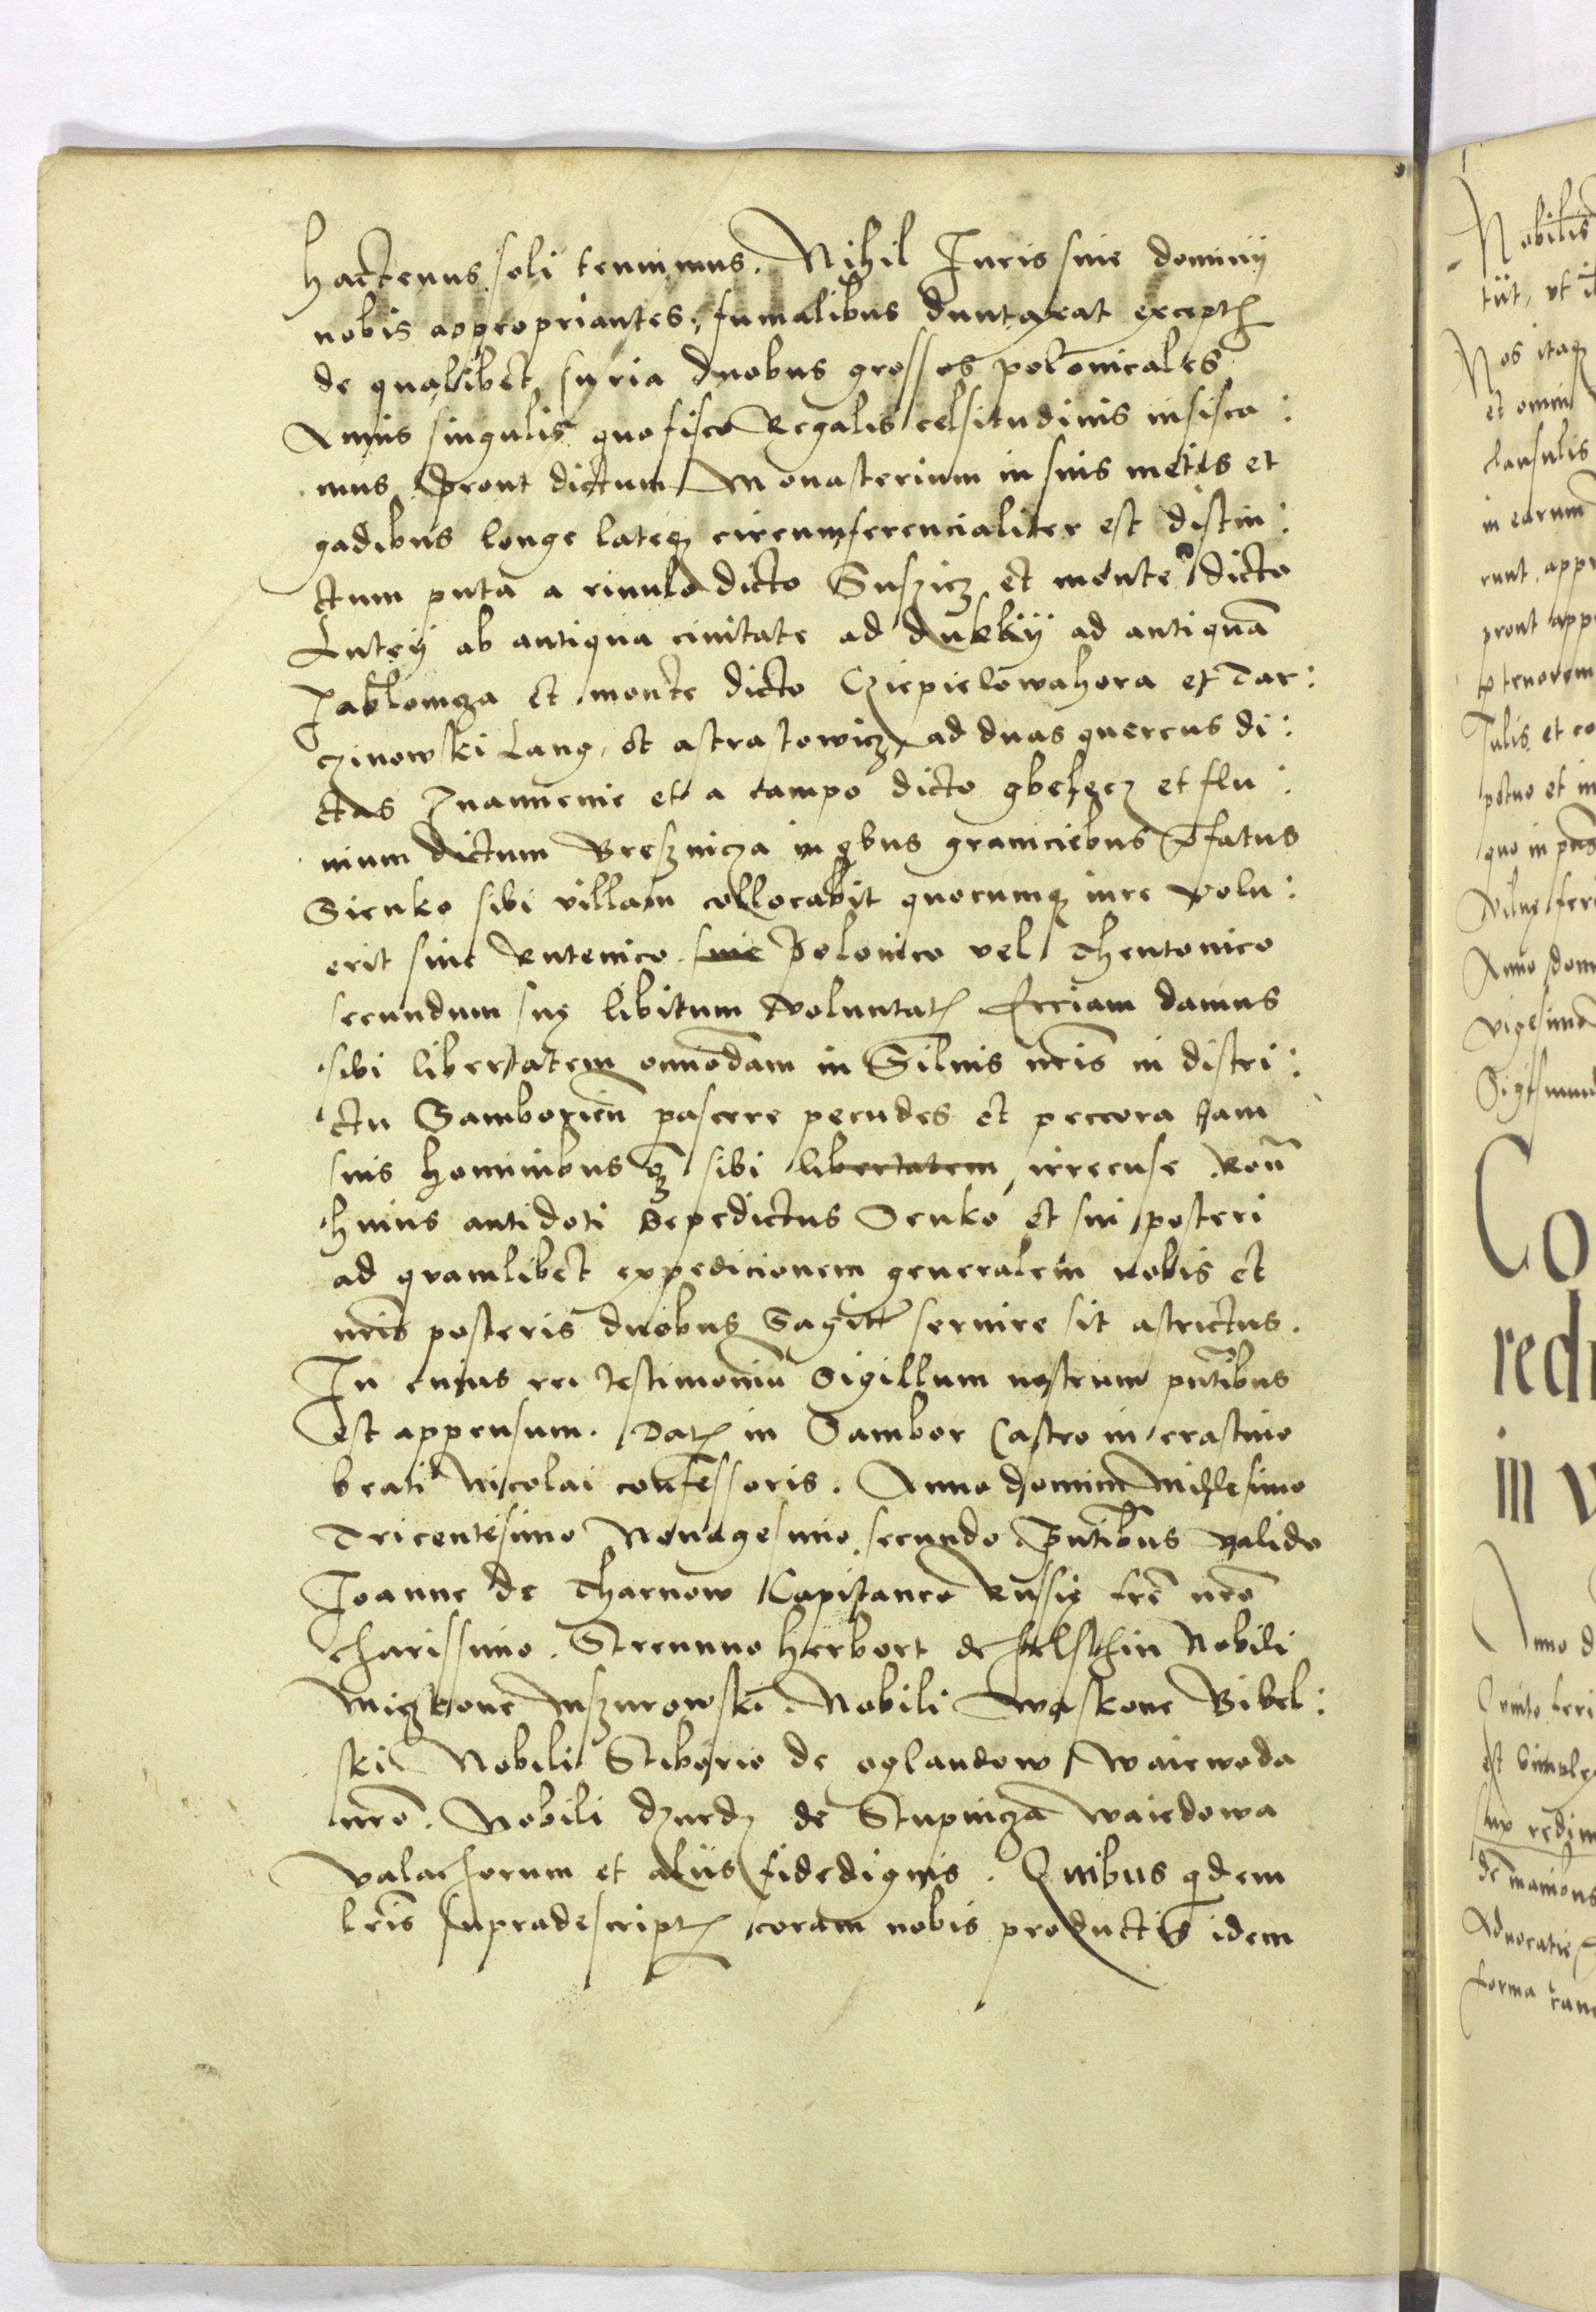 hactenus soli tenuimus. Nihil Iuris siue dominij
nobis appropriantes, fumalibus duntaxat exceptꝭ
de qualibet curia duobus grossos polonicales
Annis singulis quo fisco Regalis celsitudinis insisca:
mus Prout dictum Monasterium in suis metis et
gadibus longe lateqꝫ circumferencialiter est distin:
ctum puta a riuulo dicto Suszicz et monte dicto
Lutey ab antiqua ciuitate ad dubkij ad antiquā
Jablonicza et monte dicto Cziepielowahora et Tar:
czinowski Lang, et astrastowicz ad duas quercus di:
ctas Iuannenie et a campo dicto gbelecz et flu:
uium dictum Bresznicza in qbus graniciebus p̄fatus
Sienko sibi villam collocabit quocumqꝫ iure volu:
erit siue Rutenico siue Polonico vel Theutonico
secundum suę libitum voluntatꝭ Ecciam damus
sibi libertatem omnōdam in Siluis nr̄is in distri:
ctu Samborien̄ pascere pecudes et peccora tam
suis hominibus qꝫ sibi libertatem, irrecuse Roñ
huius antidoti sepedictus Senko et sui posteri
ad quamlibet expedicionem generalem nobis et
nr̄is posteris duobus Sagitt̄ seruire sit astrictus.
In cuius rei testimoniū Sigillum nostrum pn̄tibus
est appensum. Datꝭ in Sambor Castro in crastino
beati Nicolai confessoris. Anno domini Millesimo
Tricentesimo Nonagesimo secundo Pn̄tibus valido
Joanne de Tharnow Capitaneo Russię frē nr̄o
charissimo. Strennuo Herbort de felschin Nobili
Miczkone Mszurowski. Nobili Waskone Bibel:
ski Nobili Stiborio de oglandow Waiewoda
nr̄o. Nobili dzurdz de Stupnicza waiedowa
valachorum et aliis fidedignis. Quibus qdem
lr̄is supradescriptꝭ coram nobis productis idem
Nobilis
tūt, vt
Nos itaqꝫ
et omni
clausulis
in earum
runt, app
prout app
tenorem
Tulis et co
petuo et in
quo in
feri
Anno dom
vigesimo
Sigismun
Co
redi
in v
Anno d
Quinto feri
est Simple
redim
Aduocatie
forma can